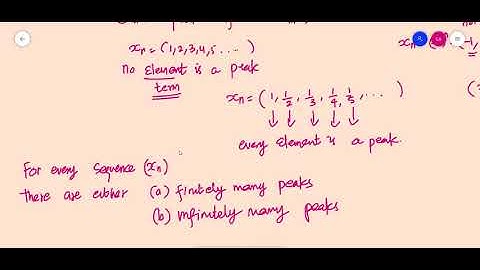 xₙ = (1, 2, 3, 4, 5 ....)
no Element is a peak
term
xₙ = (1, 1/2, 1/3, 1/4, 1/5, ...)
↓ ↓ ↓ ↓ ↓
every Element is a peak.
For every sequence (xₙ)
there are either (a) finitely many peaks
(b) infinitely many peaks